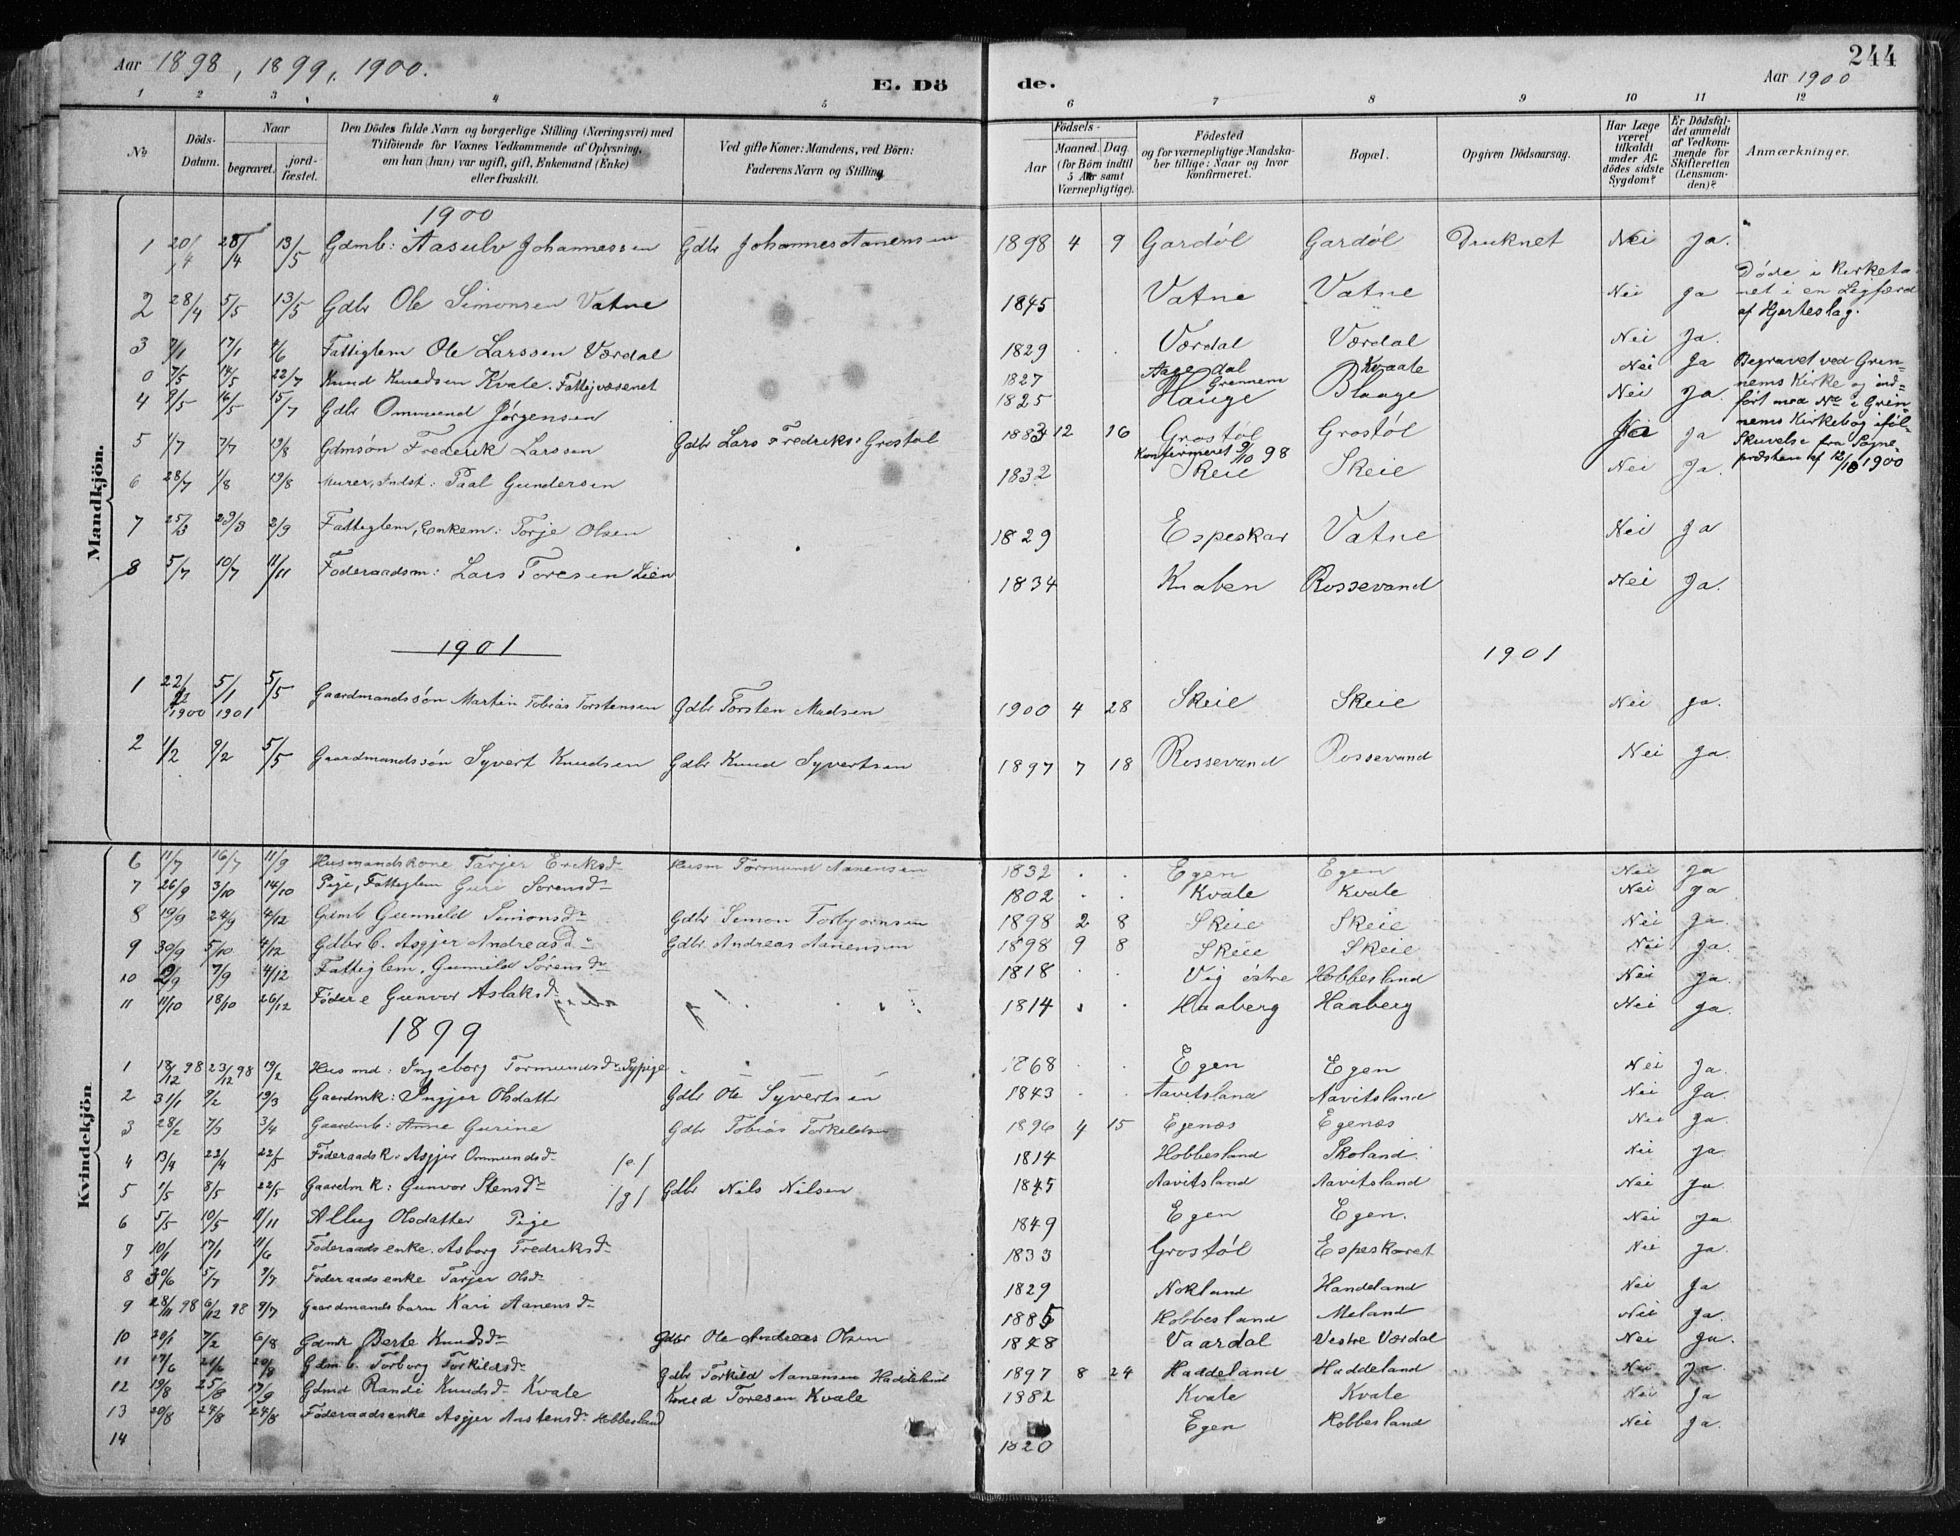 Aar 1898, 1899, 1900.
E. Dö
de.
Aar 1900
244
1 2 3 4 5 6 7 8 9 10 11 12
No Döds-Datum. Naar begravet. jordfæstet. Den Dödes fulde Navn og borgerlige Stilling (Næringsvei) med Tilföiende for Voxnes Vedkommende af Oplysning, om han (hun) var ugift, gift, Enkemand (Enke) eller fraskilt. Ved gifte Koner: Mandens, ved Börn: Faderens Navn og Stilling Födsels- Aar Maaned. Dag. (for Börn indtil 5 Aar samt Værnepligtige). Födested og for værnepligtige Mandskaber tillige: Naar og hvor konfirmeret. Bopæl. Opgiven Dödsaarsag. Har Læge været tilkaldt under Afdödes sidste Sygdom? Er Dödsfaldet anmeldt af Vedkommende for Skifteretten (Lensmanden)? Anmærkninger.
Mandkjön.
1900
1 20/4 28/4 13/5 Gdmb: Aasulv Johannessen Gdbr Johannes Aanensen 1898 4 9 Gardøl Gardøl Druknet Nei Ja.
2 28/4 5/5 13/5 Gdbr Ole Simonsen Vatne 1845 Vatne Vatne Nei Ja Døde i Kirketa- net i en Ligfærd af Hjerteslag.
3 7/1 17/1 4/6 Fattiglem Ole Larssen Værdal 1829 Værdal Værdal Nei Ja.
0 7/5 14/5 22/7 Knud Knudsen Kvale. Fattigvæsenet 1827 Aagedal Grennem Kvaale Nei Ja Begravet ved Gren- nems Kirke og ind- ført med No i Gren- nems Kirkebog iføl- Skrivelse fra Sogne- præsten af 12/10 1900
4 9/5 16/5 15/7 Gdbr Ommund Jørgensen 1825 Hauge Blaage Nei Ja.
5 1/7 7/7 19/8 Gdmsøn Frederik Larssen Gdbr Lars Fredriks: Grostøl 1883 12 16 Grostøl Konfirmeret 9/10 98 Grostøl Ja Ja
6 28/7 1/8 19/8 Murer, Indst: Paal Gundersen 1832 Skeie Skeie Nei Ja.
7 25/3 29/3 2/9 Fattiglem, Enkem: Torje Olsen 1829 Espeskar Vatne Nei Ja
8 5/7 10/7 11/11 Føderaadsm: Lars Toresen Lien 1834 Knaben Rossevand Nei Ja.
1901 1901
1 22/12 1900 5/1 1901 5/5 Gaardmandssøn Martin Tobias Torstensen Gdbr Torsten Madsen 1900 4 28 Skeie Skeie Nei Ja.
2 1/2 9/2 5/5 Gaardmandssøn Syvert Knudsen Gdbr Knud Syvertsen 1897 7 18 Rossevand Rossevand Nei Ja.
Kvindekjön
6 11/7 16/7 11/9 Husmandskone Tarjer Eriksdr Husm Tormund Aanensen 1832 Egen Egen Nei Ja
7 26/9 3/10 14/10 Pige, Fattiglem Guri Sørensdr 1802 Kvale Kvale Nei Ja
8 19/9 24/9 4/12 Gdmb Gunneld Simonsdr Gdbr Simon Torbjørnsen 1898 2 8 Skeie Skeie Nei Ja.
9 30/9 5/10 4/12 Gdbr b. Asgjer Andreasdr Gdbr. Andreas Aanensen 1898 9 8 Skeie Skeie Nei Ja.
10 2/9 7/9 4/12 Fattiglem. Gunnild Sørensdr 1818 Vig østre Hobbesland Nei Ja.
11 11/10 18/10 26/12 Føder e Gunvor Aslaksdr 1814 Haaberg Haaberg Nei Ja.
1899
1 18/12 98 23/12 98 19/2 Husmd: Ingeborg Tormundsdr Sypige 1868 Egen Egen Nei Ja.
2 31/1 9/2 19/3 Gaardmk: Ingjer Olsdatter Gdbr Ole Syvertsen 1843 Aavitsland Aavitsland Nei Ja.
3 28/2 7/3 3/4 Gaardmb: Anne Gurine Gdbr Tobias Torkildsen 1896 4 15 Egenæs Egenæs Nei Ja.
4 13/4 22/4 22/5 Føderaads K: Asgjer Ommundsdr /e/ 1814 Hobbesland Skoland. Nei Ja
5 1/5 8/5 22/5 Gaardm K: Gunvor Stensdr /g/ Gdbr Nils Nilsen 1845 Aavitsland Aavitsland Nei Ja.
6 5/5 10/5 11/11 Allug Olsdatter Pige 1849 Egen Egen. Nei Ja
7 10/1 17/1 11/6 Føderaadsenke. Asborg Fredriksdr 1833 Grostøl Espeskaret Nei Ja.
8 30/6 5/7 9/7 Føderaadsenke Tarjer Olsdr 1829 Nokland Handeland Nei Ja
9 28/11 98 6/12 98 9/7 Gaardmandsbarn Kari Aanensdr 1885 Hobbesland Meland Nei Ja.
10 20/1 7/2 6/8 Gdmk Berte Knudsdr Gdbr Ole Andreas Olsen 1848 Vaardal Vestre Værdal Nei Ja.
11 17/6 21/6 20/8 Gdm b. Torborg Torkildsdr Gdbr Torkild Aanensen Haddeland 1897 8 24 Haddeland Haddeland Nei Ja.
12 19/8 25/8 17/9 Gdmd Randi Knudsdr Kvale Knud Toresen Kvale 1882 Kvale Kvale Nei Ja
13 20/8 24/8 24/8 Føderaadsenke Asgjer Anstensdr Hobbesland 1820 Egen Hobbesland Nei Ja.
14